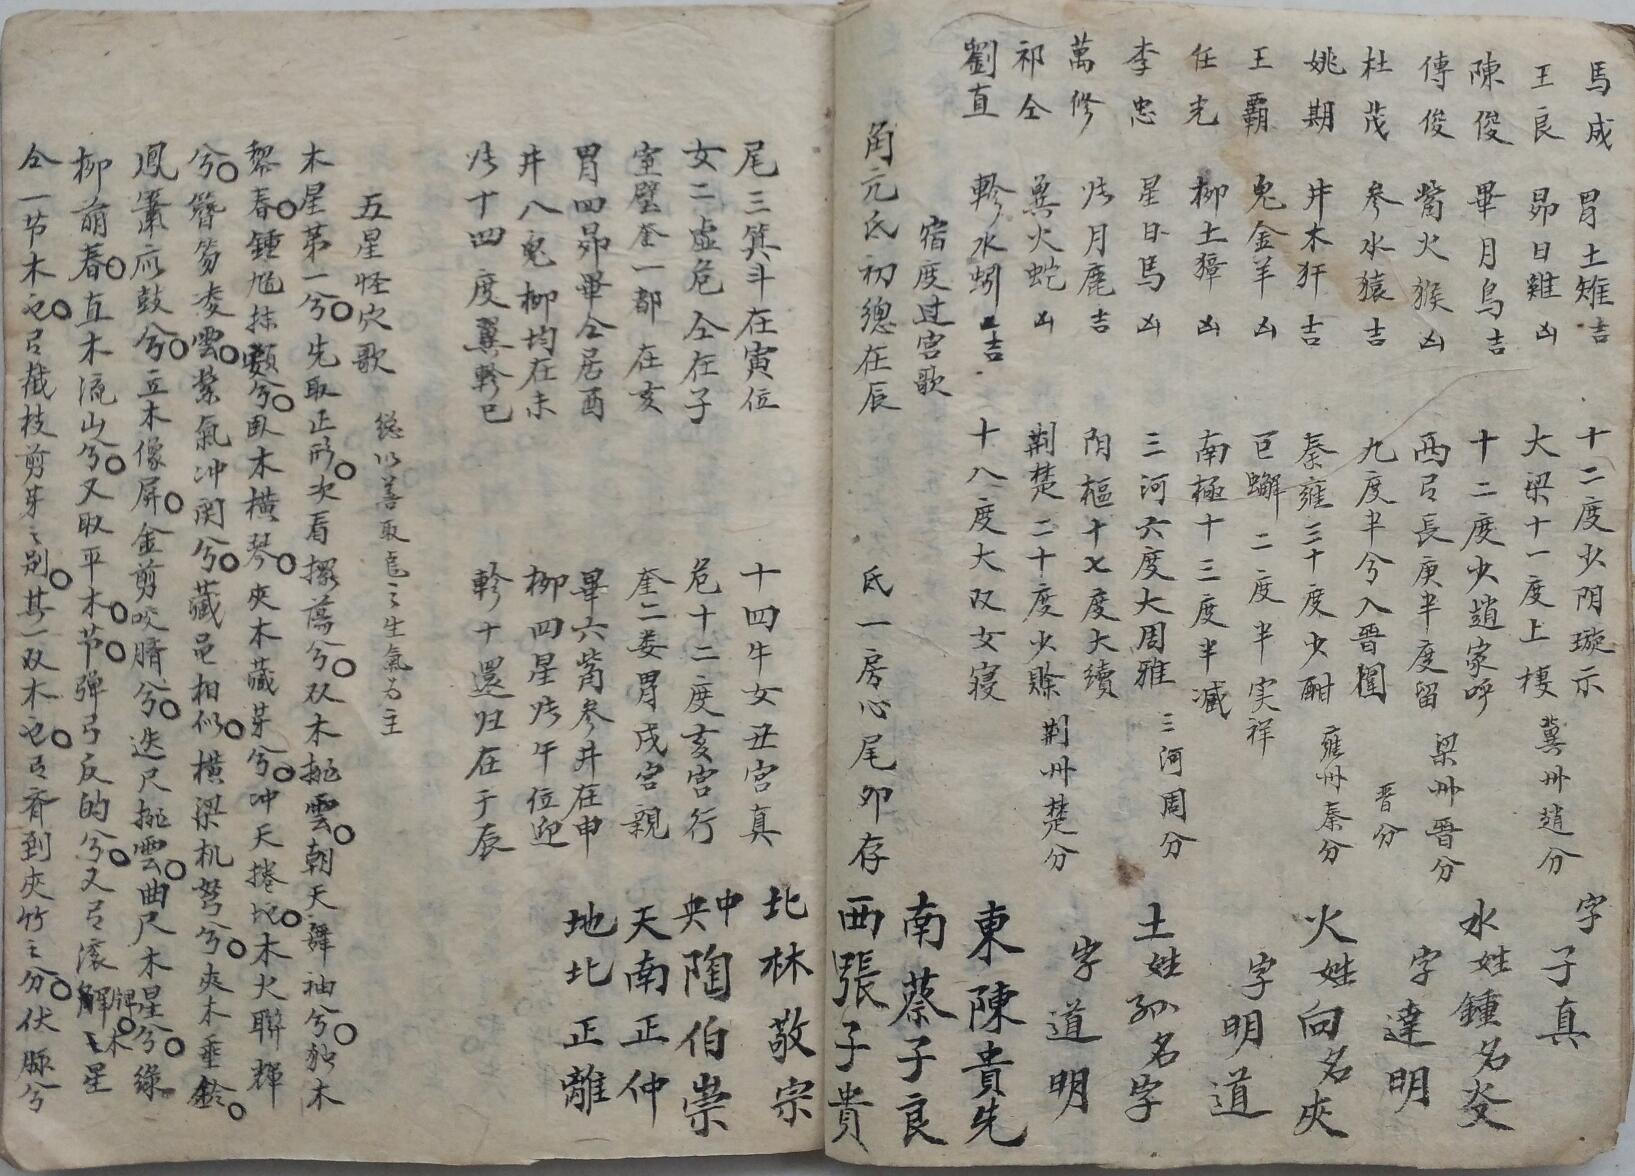 馬成 胃土雉吉 十二度少阴璇示
王良 昴日雞凶 大梁十一度上樓 冀州趙分
陳俊 畢月烏吉 十二度少趙家呼
傳俊 觜火猴凶 西弓長庚半度留 梁州晋分
杜茂 参水猿吉 九度半兮入晋闈 晋分
姚期 井木犴吉 秦雍三十度少酣 雍州秦分
王霸 鬼金羊凶 巨蠏二度半实祥
任光 柳土獐凶 南極十三度半减
李忠 星日馬凶 三河六度大周雅 三河周分
萬修 张月鹿吉 阴樞十七度大續
祁仝 翼火蛇凶 荆楚二十度少賖 荆州楚分
劉直 軫水蚓吉 十八度大双女寝
字子真
水姓鍾名
字達明
火姓向名夾
字明道
土姓孙名字
字道明
東陳貴先
南蔡子良
西張子貴
宿度过宫歌
角亢氐初總在辰 氐一房心尾卯存
尾三箕斗在寅位 十四牛女丑宫真 北林敬宗
女二虚危仝在子 危十二度亥宫行 中央陶伯崇
室璧奎一都在亥 奎二娄胃戌宫親 天南正仲
胃四昴畢仝居酉 畢六觜参井在申 地北正離
井八鬼柳均在未 柳四星张午位迎
张十四度翼軫巳 軫十還归在于辰
五星怪穴歌 総以善取色之生氣为主
木星第一兮先取正形次看擺蕩兮双木挑雲朝天舞袖兮独木
黎春鍾馗抹額兮臥木横琴夾木藏芽兮冲天捲地木火聯輝
兮簪笏凌雲紫氣冲関兮藏皂相似横梁机弩兮夾木垂鈴
鳳簫应鼓兮立木像屏金剪咬臍兮迭尺挑雲曲尺木星兮緑
柳萠春直木流山兮又取平木节弹弓反的兮又弓滚牌木星
仝一节木也弓截枝剪芽之别其一双木也弓齐到夾竹之分伏脈兮